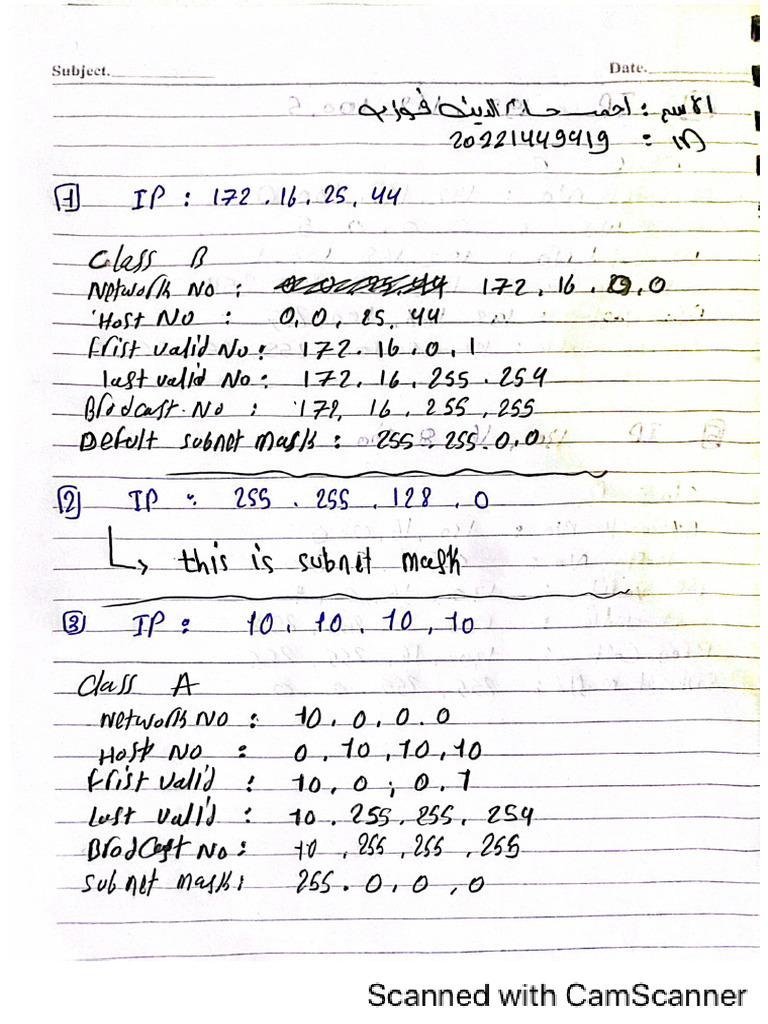 Subject.
Date.
الاسم : احمد حسام الدين فوزي
20221449419 : ID
1 IP : 172.16.25.44
Class B
Network No : 172.16.0.0
Host No : 0.0.25.44
Frist valid No : 172.16.0.1
last valid No : 172.16.255.254
Brodcast No : 172.16.255.255
Defult subnet mask : 255.255.0.0
2 IP : 255.255.128.0
this is subnet mask
3 IP : 10.10.10.10
Class A
Network No : 10.0.0.0
Host No : 0.10.10.10
Frist valid : 10.0.0.1
Last valid : 10.255.255.254
Brodcast No : 10.255.255.255
subnet mask : 255.0.0.0
Scanned with CamScanner